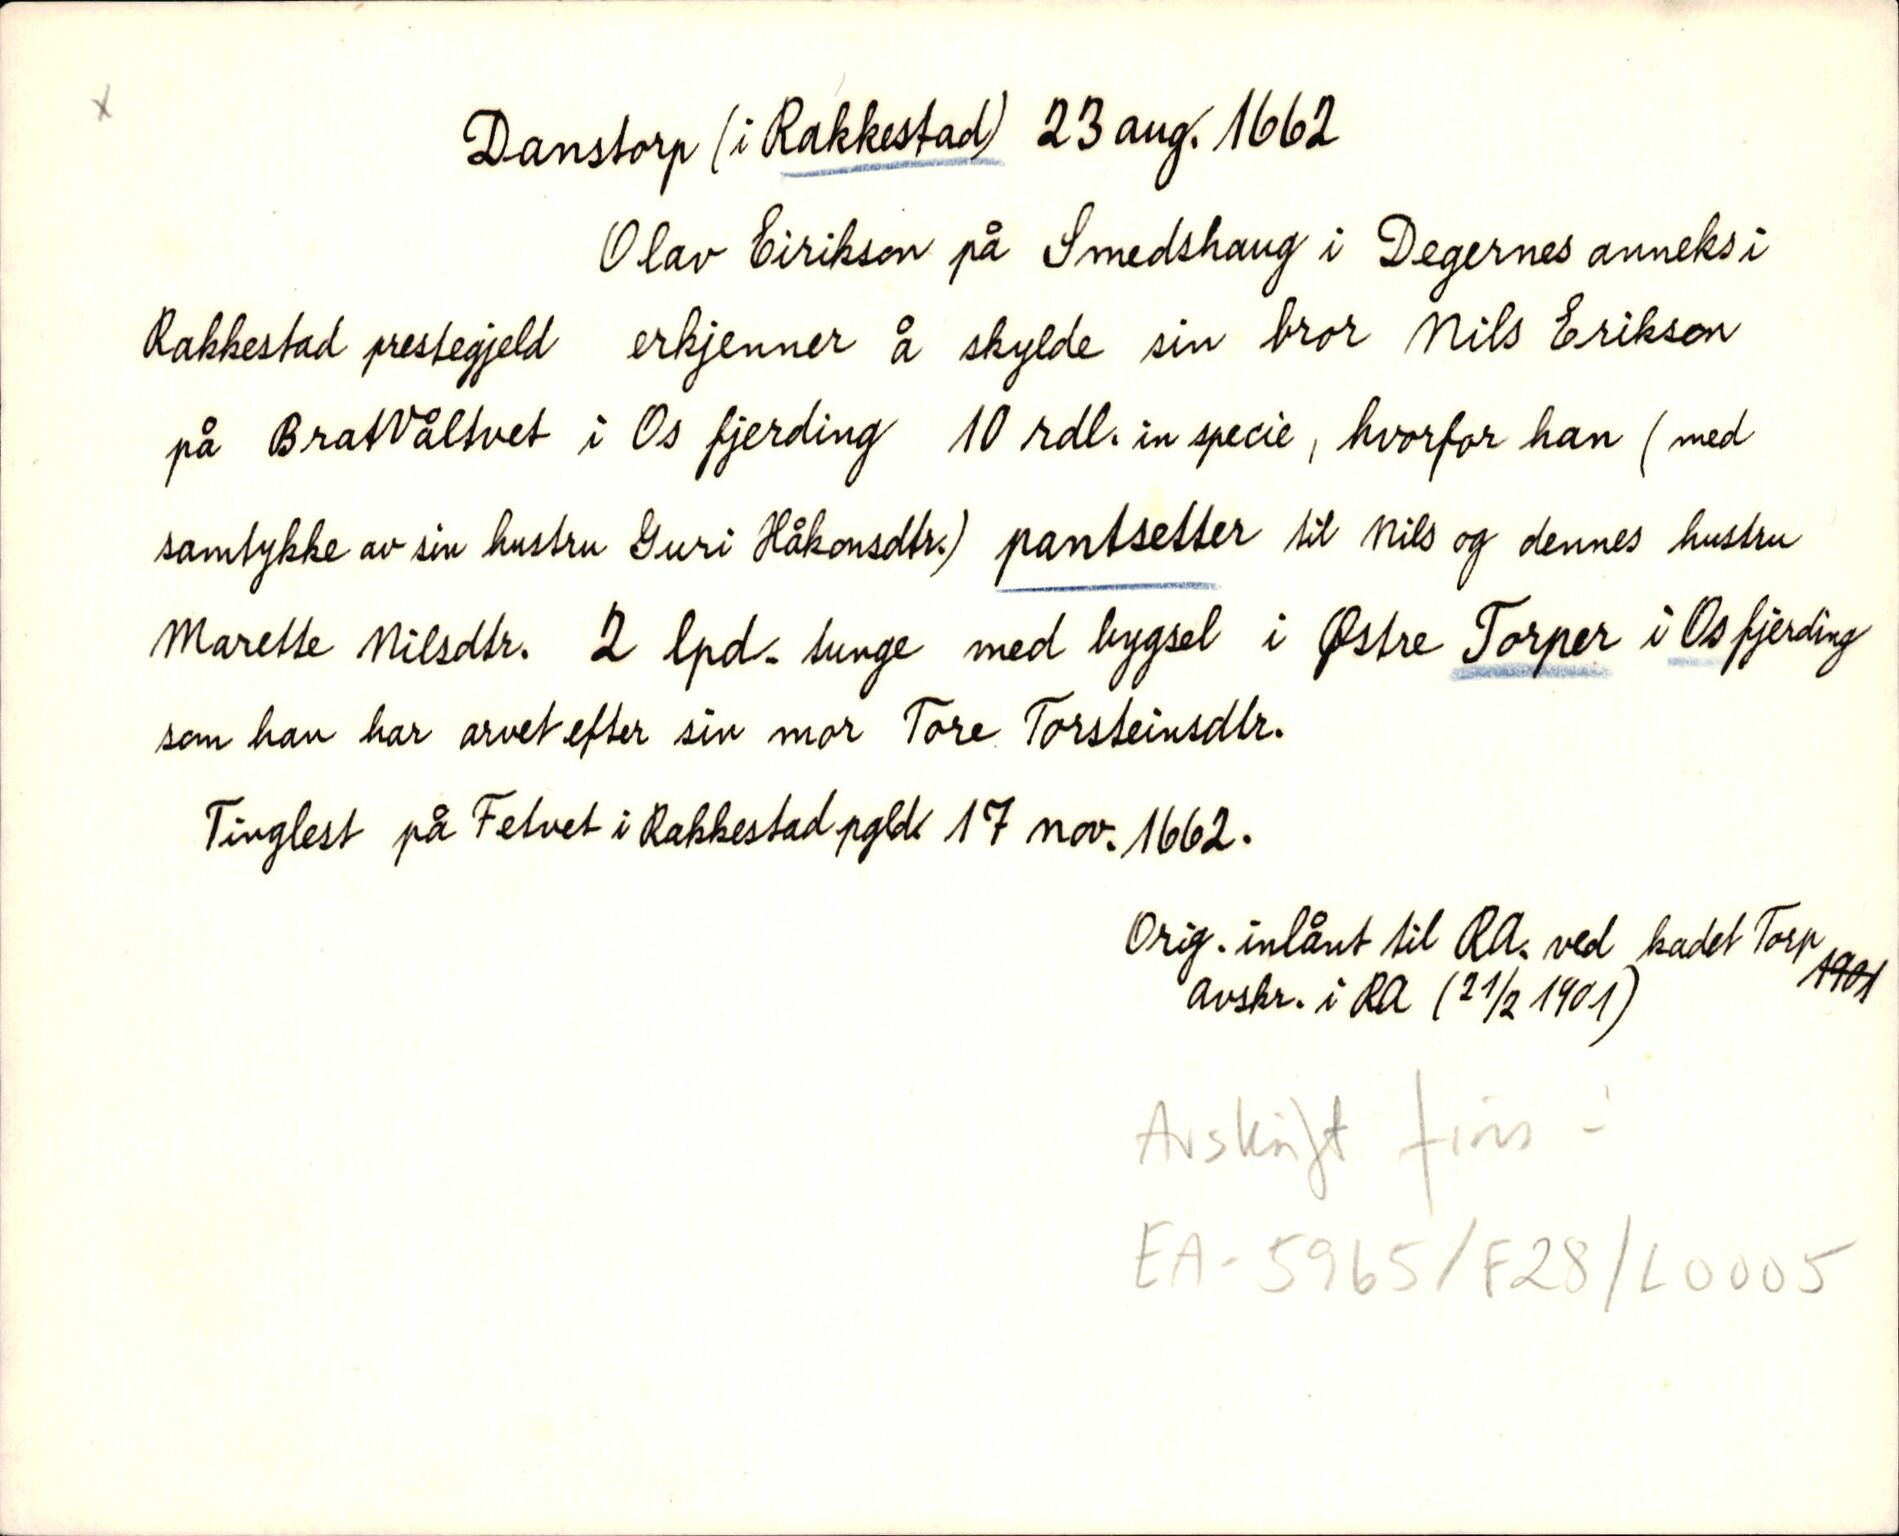 x
Danstorp (i Rakkestad) 23 aug. 1662
Olav Eirikson på Smedshaug i Degernes anneks i
Rakkestad prestegjeld erkjenner å skylde sin bror Nils Erikson
på BratVåltvet i Os fjerding 10 rdl. in specie, hvorfor han (med
samtykke av sin hustru Guri Håkonsdtr.) pantsetter til Nils og dennes hustru
Marette Nilsdtr. 2 lpd. tunge med bygsel i Østre Torper i Os fjerding
som han har arvet efter sin mor Tore Torsteinsdtr.
Tinglest på Fetvet i Rakkestad pgld. 17 nov. 1662.
Orig. inlånt til RA. ved kadet Torp
1901
Avskr. i RA (21/2 1901)
Avskrift fins i
EA-5965/F28/L0005